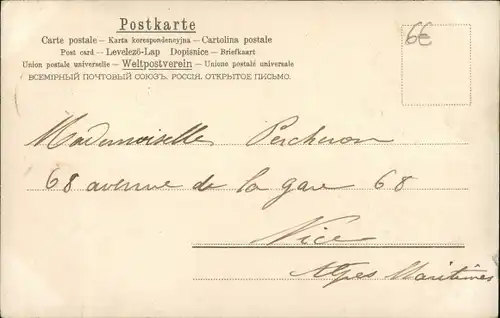 Postkarte
Carte postale — Karta korespondencyjna — Cartolina postale
Post card — Levelező-Lap Dopisnice — Briefkaart
Union postale universelle — Weltpostverein — Unione postale universale
ВСЕМІРНЫЙ ПОЧТОВЫЙ СОЮЗЪ. РОССІЯ. ОТКРЫТОЕ ПИСЬМО.
6€
Mademoiselle Percheron
68 avenue de la gare 68
Nice
Alpes Maritimes